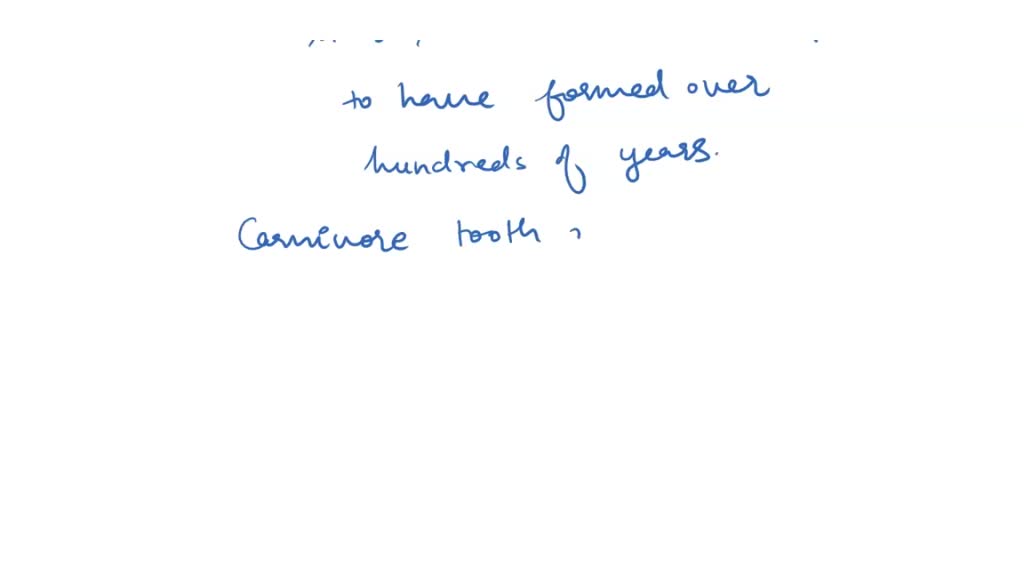 to have formed over
hundreds of years.
Carnivore tooth